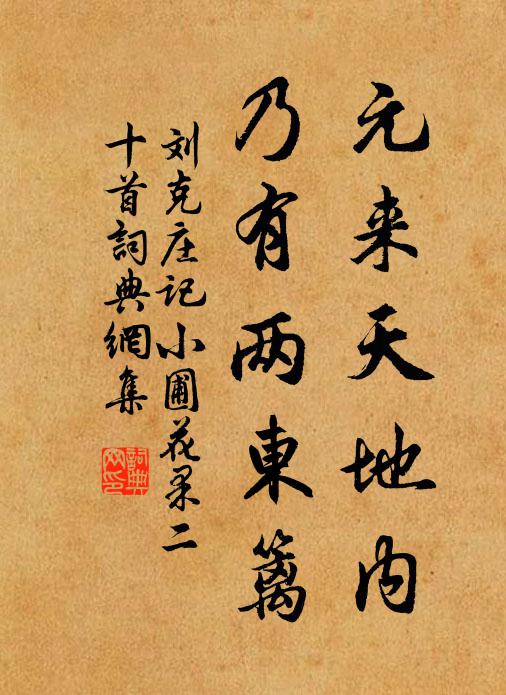 元来天地内
乃有两東籬
刘克庄记小圃花果二
十首詞典網集
詞典網印